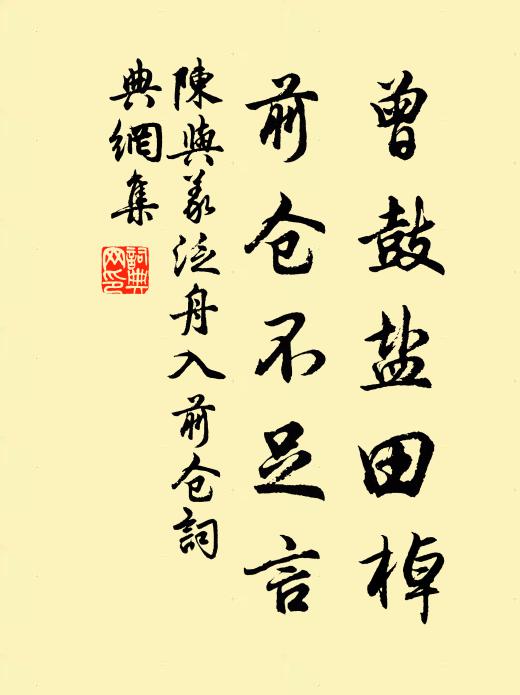 曾鼓盐田棹
前仓不足言
陳與義泛舟入前仓詞
典網集
詞典
网印